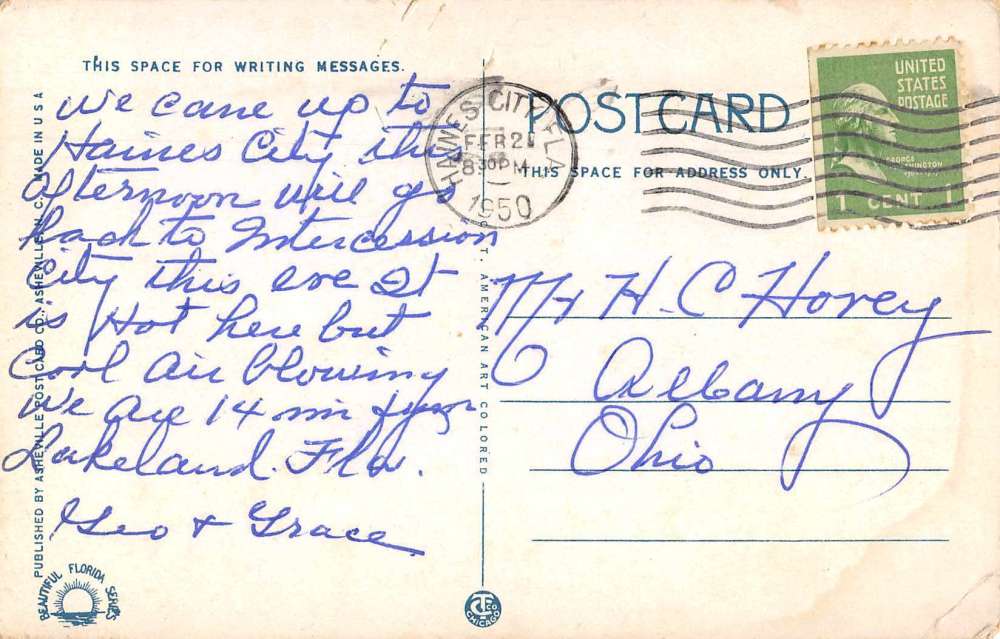 THIS SPACE FOR WRITING MESSAGES.
We came up to
Haines City this
afternoon will go
back to Intercession
City this eve It
is Hot here but
Cool Air blowing
We are 14 mi from
Lakeland. Fla.
Geo + Grace
PUBLISHED BY ASHEVILLE POST CARD CO., ASHEVILLE, N. C. MADE IN U S A
BEAUTIFUL FLORIDA SERIES
C. T. AMERICAN ART COLORED
CT CO
CHICAGO
HAINES CITY FLA
FEB 2
830 PM
1950
POSTCARD
THIS SPACE FOR ADDRESS ONLY.
UNITED
STATES
POSTAGE
GEORGE
WASHINGTON
1 CENT 1
Mr H. C Hovey
Albany
Ohio